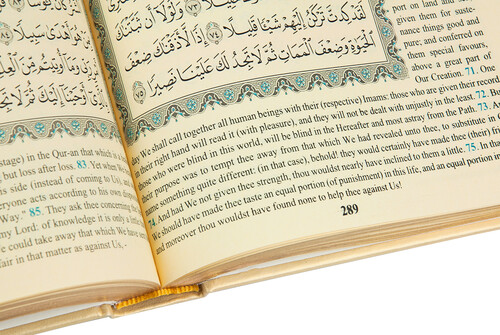 أَهْدَىٰ سَبِيلًا
أَوْحَيْنَا إِلَيْكَ ثُمَّ لَا
stage) in the Qur-an that which is
but loss after loss. 83. Yet when We
his side (instead of coming to Us), and
everyone acts according to his own
Way." 85. They ask thee concerning the
my Lord: of knowledge it is only a
We could take away that which We have
fair in that matter as against Us,
وَلَوْلَا أَن
لَقَدْ كِدتَّ تَرْكَنُ إِلَيْهِمْ شَيْئًا قَلِيلًا ٧٤ إِذًا لَّأَذَقْنَاكَ ضِعْفَ
الْحَيَوٰةِ وَضِعْفَ الْمَمَاتِ ثُمَّ لَا تَجِدُ لَكَ عَلَيْنَا نَصِيرًا
٧٥
port on land and
given them for suste-
nance things good and
pure; and conferred on
them special favours,
above a great part of
Our Creation. 71. One
day We shall call together all human beings with their (respective) Imams: those who are given their record
in their right hand will read it (with pleasure), and they will not be dealt with unjustly in the least. 72. But
those who were blind in this world, will be blind in the Hereafter and most astray from the Path. 73. And
their purpose was to tempt thee away from that which We had revealed unto thee, to substitute in Our
name something quite different: (in that case), behold! they would certainly have made thee (their)
74. And had We not given thee strength, thou wouldst nearly have inclined to them a little. 75. In that
We should have made thee taste an equal portion (of punishment) in this life, and an equal portion
and moreover thou wouldst have found none to help thee against Us!
289